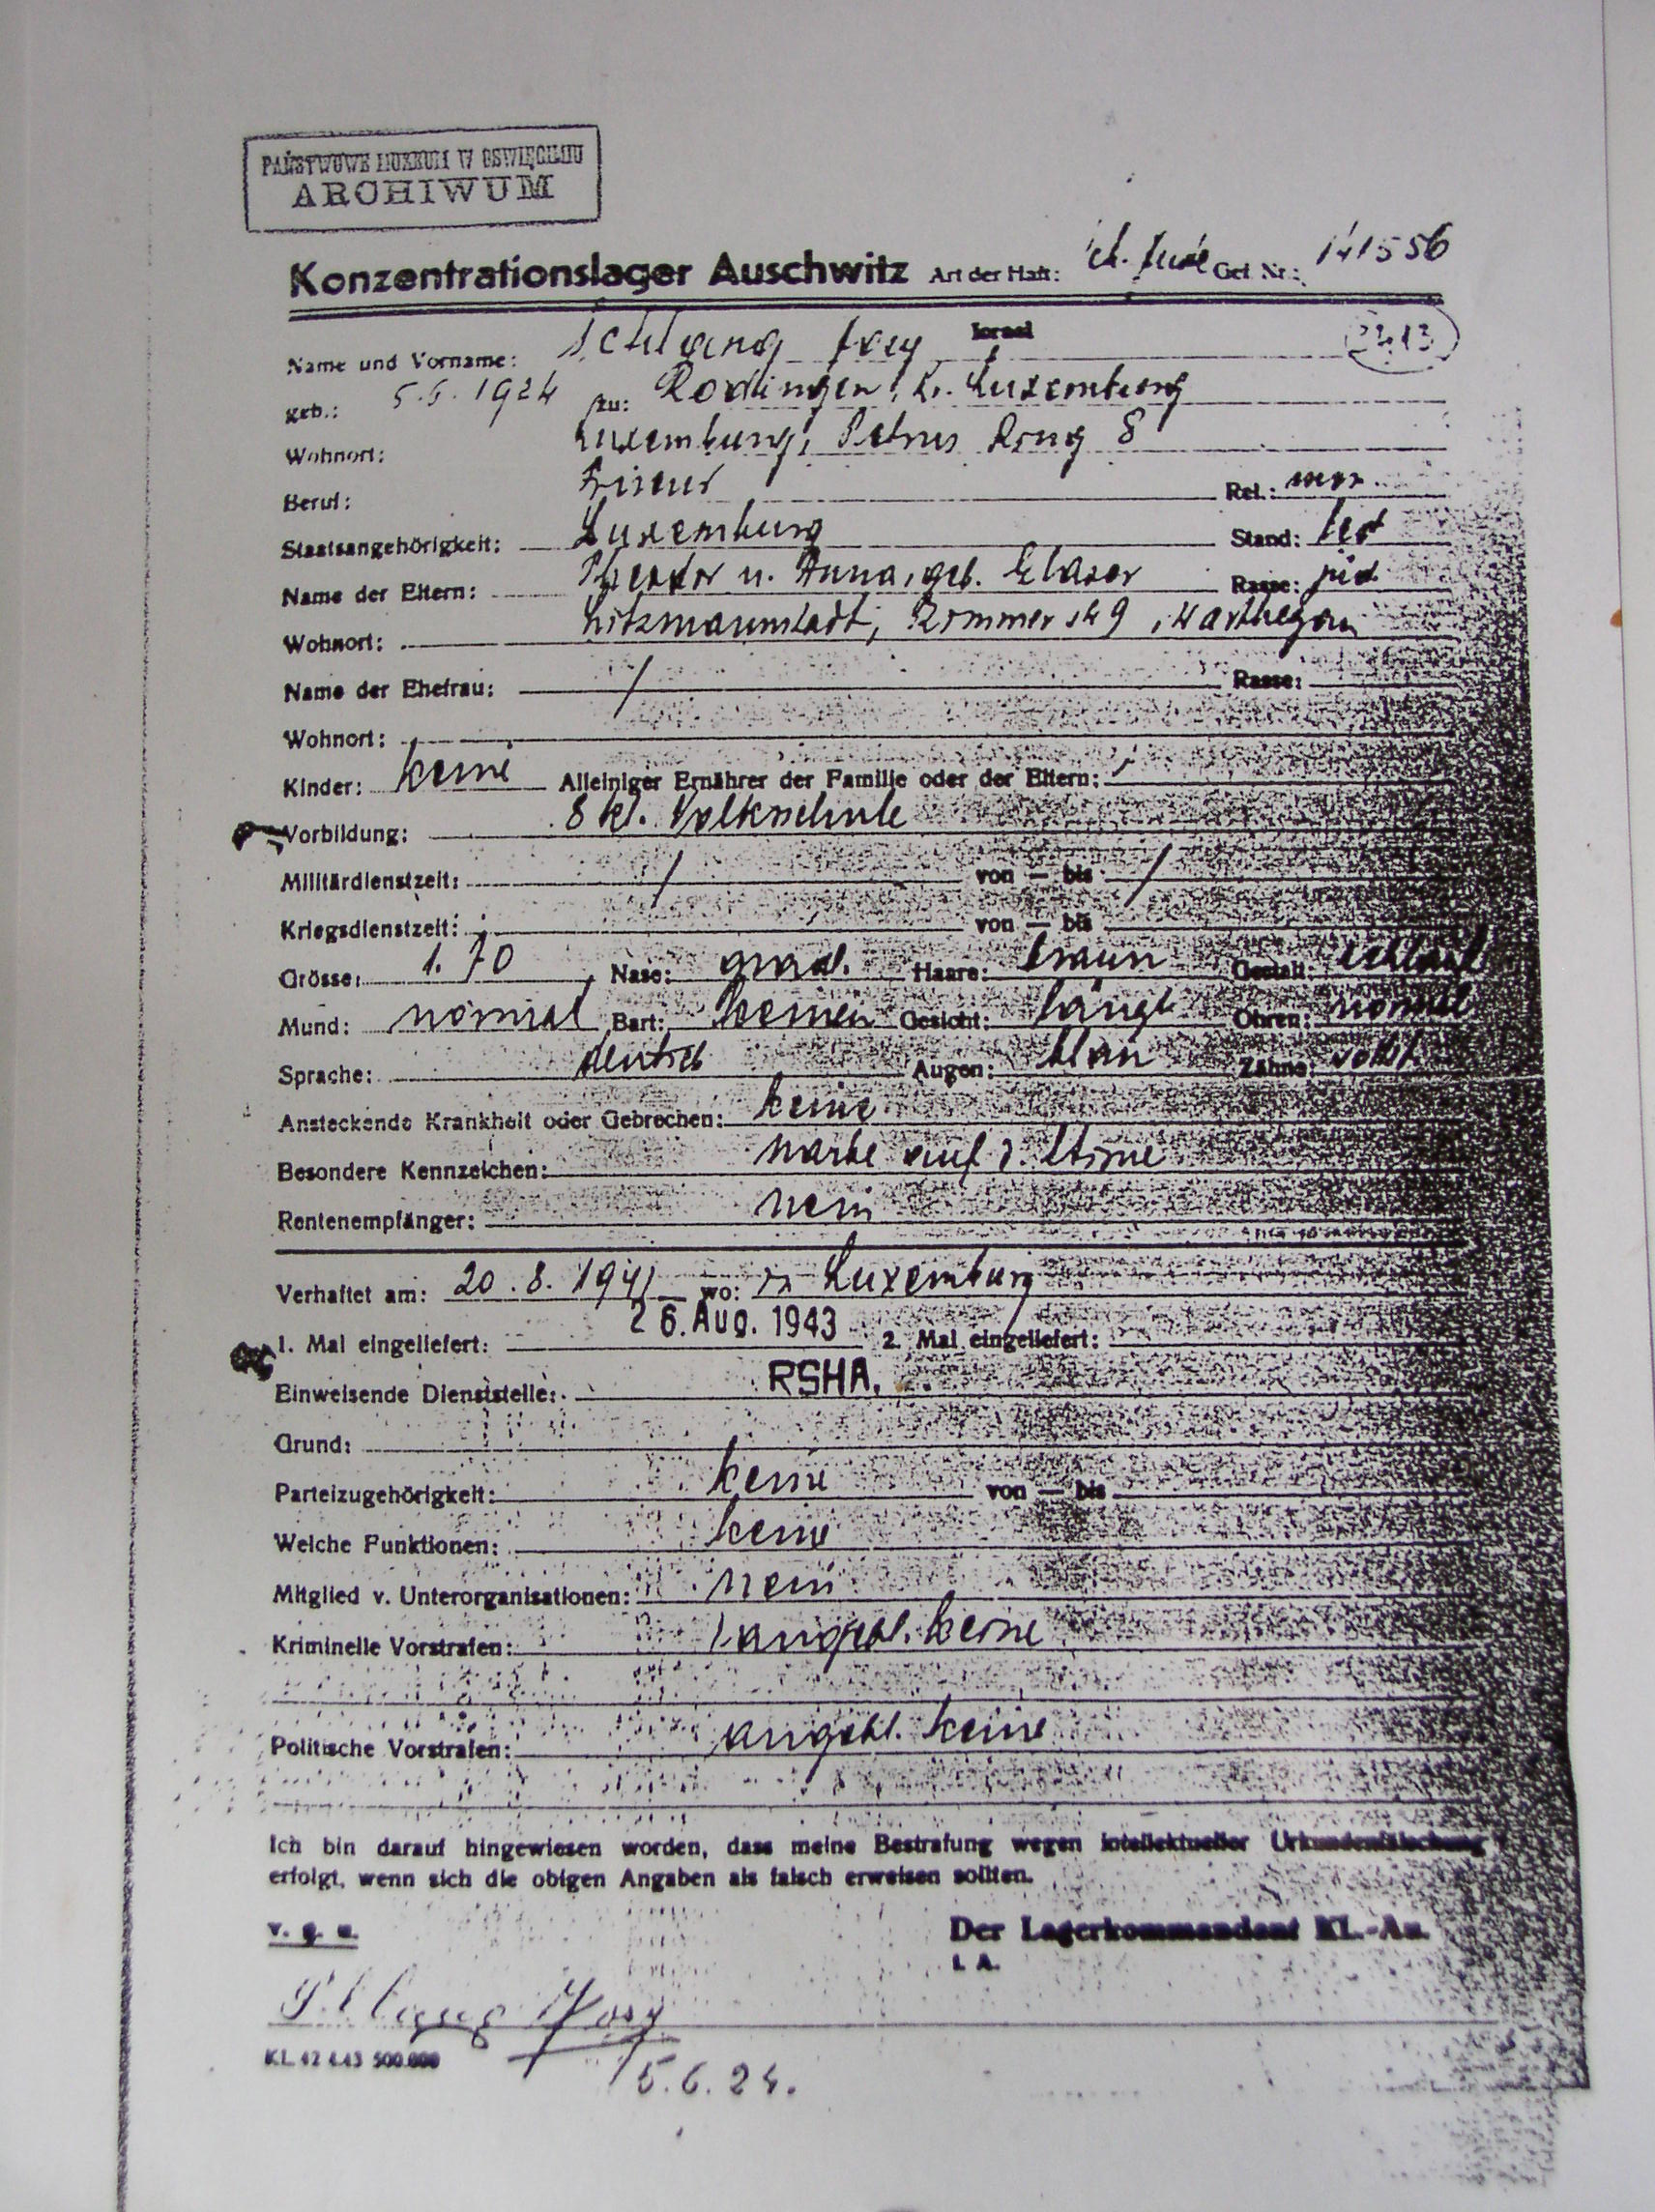 PAŃSTWOWE MUZEUM W OŚWIĘCIMIU
ARCHIWUM
Konzentrationslager Auschwitz Art der Haft: Sch. Jude Gef. Nr.: 141556
Name und Vorname: Schlang Josy Israel
geb.: 1924 zu: Rodingen, Luxemburg
Wohnort: Luxemburg, Petrus Ring 8
Beruf: Friseur Rel.: mos.
Staatsangehörigkeit: Luxemburg Stand: led
Name der Eltern: u. Anna, geb. Rasse: jüd.
Wohnort: Litzmannstadt, 9, Warthegau
Name der Ehefrau: / Rasse:
Wohnort:
Kinder: keine Alleiniger Ernährer der Familie oder der Eltern: /
Vorbildung: 8 kl. Volksschule
Militärdienstzeit: / von — bis /
Kriegsdienstzeit: von — bis
Grösse: 1.70 Nase: grad. Haare: braun Gestalt: schlank
Mund: normal Bart: keinen Gesicht: längl. Ohren: normal
Sprache: deutsch Augen: blau Zähne: vollst.
Ansteckende Krankheit oder Gebrechen: keine
Besondere Kennzeichen: Narbe auf d. Stirne
Rentenempfänger: nein
Verhaftet am: 20.8.1941 wo: in Luxemburg
1. Mal eingeliefert: 26. Aug. 1943 2. Mal eingeliefert:
Einweisende Dienststelle: RSHA.
Grund:
Parteizugehörigkeit: keine von — bis
Welche Funktionen: keine
Mitglied v. Unterorganisationen: nein
Kriminelle Vorstrafen: angebl. keine
Politische Vorstrafen: angebl. keine
Ich bin darauf hingewiesen worden, dass meine Bestrafung wegen intellektueller Urkundenfälschung
erfolgt, wenn sich die obigen Angaben als falsch erweisen sollten.
v. g. u. Der Lagerkommandant KL.-Au.
I. A.
Schlang Josy
5.6.24.